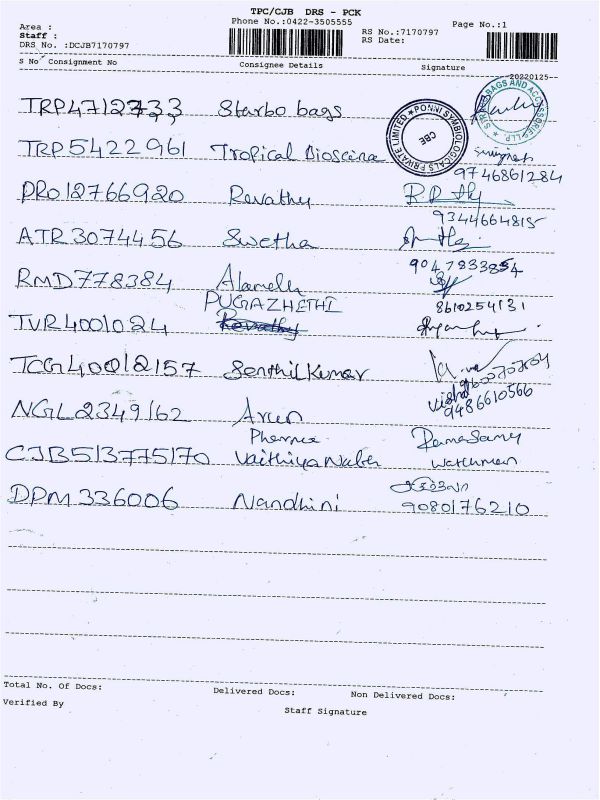 TPC/CJB DRS - PCK
Phone No.:0422-3505555
Page No.:1
Area :
Staff :
DRS No. :DCJB7170797
RS No.:7170797
RS Date:
S No Consignment No Consignee Details Signature
20220125
TRP4712733 Starbo bags
TRP5422961 Tropical Bioscina
9746861284
PONNI SYMBIOLOGICALS PRIVATE LIMITED
CBE
BAGS AND ACCESSORIES LLP
PRO12766920 Revathy
9344664815
ATR3074456 Swetha
9047833854
RMD778384 Alamelu
8610254131
PUGAZHETHI
TVR4001024 Revathy
TCG40012157 Senthil Kumar
NGL2349162 Arun
9486610566
Pharma Ramasamy
CJB513775170 Vaithiyanather watchman
DPM336006 Nandhini
9080176210
Total No. Of Docs: Delivered Docs: Non Delivered Docs:
Verified By Staff Signature